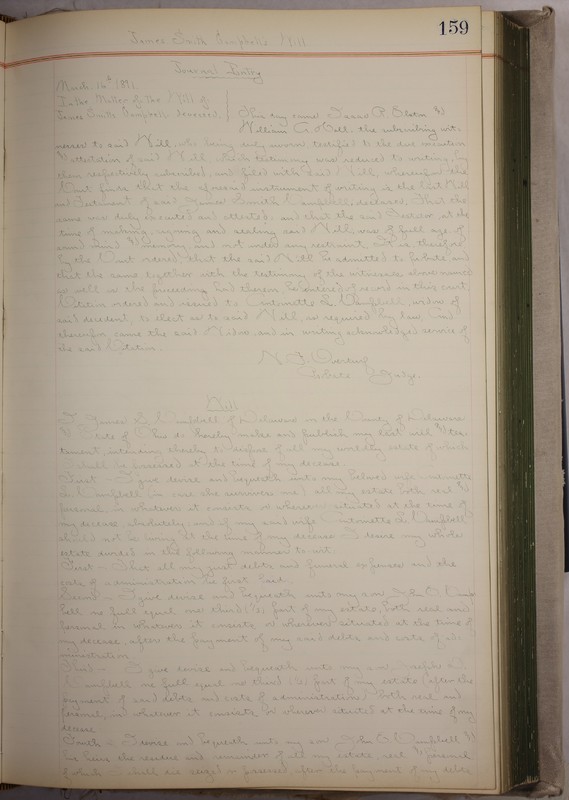 159
James Smith Campbells Will
Journal Entry
March 16th 1891.
In the Matter of the Will of
James Smith Campbell deceased.
This day came Isaac P.
William G. the subscribing wit-
nesses to said Will, who being duly sworn, testified to the due execution
& attestation of said Will which testimony was reduced to writing, by
them respectively subscribed, and filed with said Will, whereupon the
Court finds that the aforesaid instrument of writing is the last Will
and Testament of said James Smith Campbell, deceased, That the
same was duly executed and attested, and that the said Testator, at the
time of making, signing and sealing said Will was of full age, of
sound mind & memory and not under any restraint, It is therefore
by the Court ordered that the said Will be admitted to Probate and
that the same together with the testimony of the witnesses above named
as well as the proceedings had thereon be entered of record in this court,
Citation ordered and issued to Antoinette L. Campbell, widow of
said decedent, to elect as to said Will, as required by law, And
thereupon came the said Widow, and in writing acknowledged service of
the said Citation.
Probate Judge.
Will
I James S. Campbell of Delaware in the County of Delaware
& State of Ohio do hereby make and publish my last will & tes-
tament, intending thereby to dispose of all my worldly estate of which
I shall be possessed at the time of my decease.
First - I give devise and bequeath unto my beloved wife Antoinette
L. Campbell (in case she survives me) all my estate both real &
personal in whatever it consists or wherever situated at the time of
my decease absolutely and if my said wife Antoinette L. Campbell
should not be living at the time of my decease I desire my whole
estate divided in the following manner to wit.
First - That all my just debts and funeral expenses and the
costs of administration be first paid.
Second - I give devise and bequeath unto my son John C. Camp-
bell one full equal one third (1/3) part of my estate, both real and
personal in whatever it consists or wherever situated at the time of
my decease, after the payment of my said debts and costs of ad-
ministration.
Third - I give devise and bequeath unto my son,
Campbell one full equal one third (1/3) part of my estate (after the
payment of said debts and costs of administration) both real and
personal, in whatever it consists or wherever situated at the time of my
decease
Fourth - I devise and bequeath unto my son John C. Campbell &
his heirs the residue and remainder of all my estate real & personal
of which I shall die seized or possessed after the payment of my debts